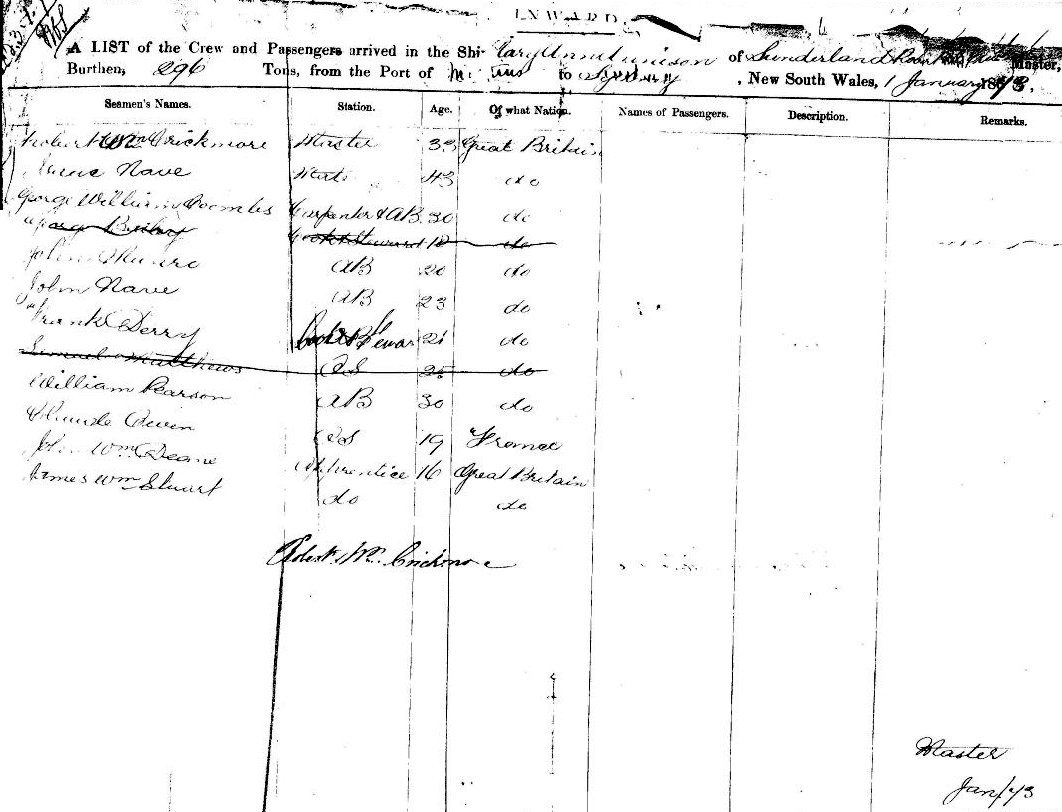 INWARD.
A LIST of the Crew and Passengers arrived in the Ship of Sunderland Master,
Burthen, 296 Tons, from the Port of to Sydney, New South Wales, 1 January 1873.
Seamen's Names. Station. Age. Of what Nation. Names of Passengers. Description. Remarks.
Robert Wm Crickmore Master 33 Great Britain
Nave Mate 43 do
George William Coombes Carpenter & AB 30 do
George Cook & Steward 18 do
John Munro AB 20 do
John Nave AB 23 do
Frank Derry Cook & Steward 21 do
Samuel Matthews OS 25 do
William Pearson AB 30 do
Owen OS 19 France
John Wm Deane Apprentice 16 Great Britain
James Wm Stuart do do
Robert Wm Crickmore
Master
Jan/73